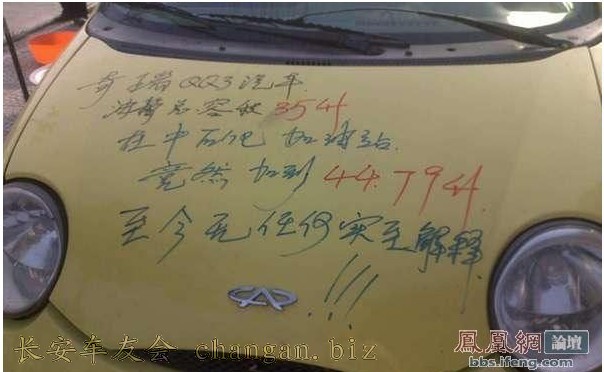 奇瑞QQ3汽车
油箱总容积35升
在中石化加油站
竟然加到44.79升
至今无任何实至解释
!!!
长安车友会 changan.biz
鳳凰網 論壇
bbs.ifeng.com